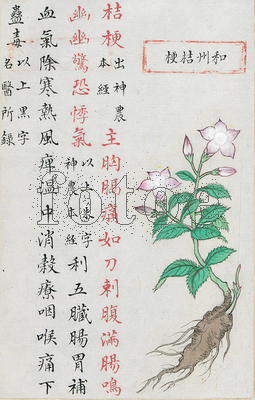 和州桔梗
桔梗出神農本經主胸脇痛如刀刺腹滿腸鳴
幽幽驚恐悸氣以上朱字神農本經利五臟腸胃補
血氣除寒熱風痺溫中消穀療咽喉痛下
蠱毒以上黑字名醫所錄
fotoe